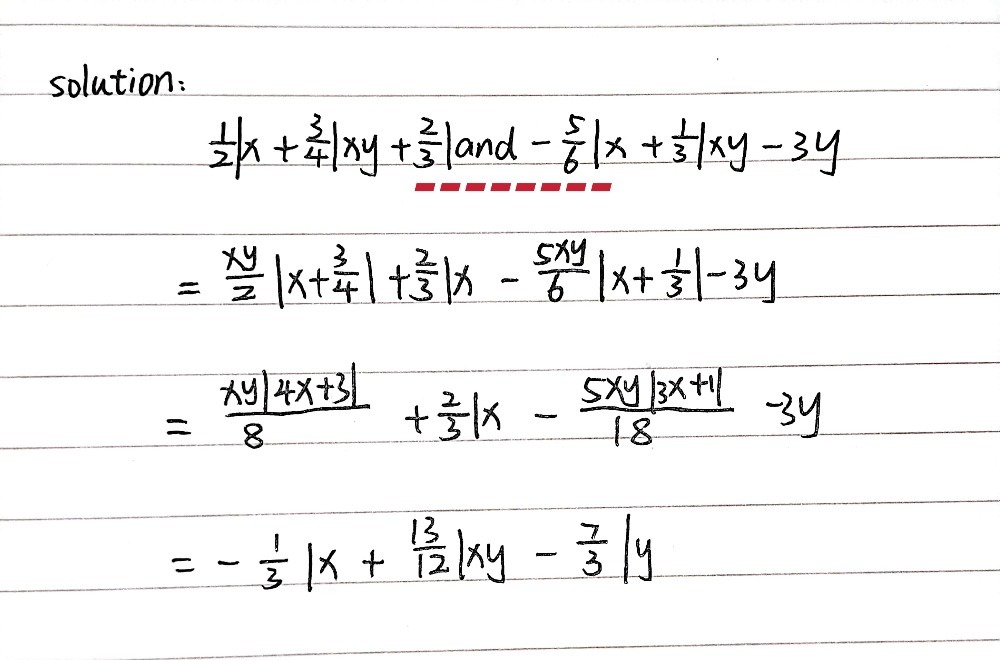 solution:
1/2|x + 3/4|xy + 2/3|and - 5/6|x + 1/3|xy - 3y
= xy/2 |x + 3/4| + 2/3|x - 5xy/6 |x + 1/3| - 3y
= xy|4x+3|/8 + 2/3|x - 5xy|3x+1|/18 - 3y
= - 1/3 |x + 13/12|xy - 7/3 |y